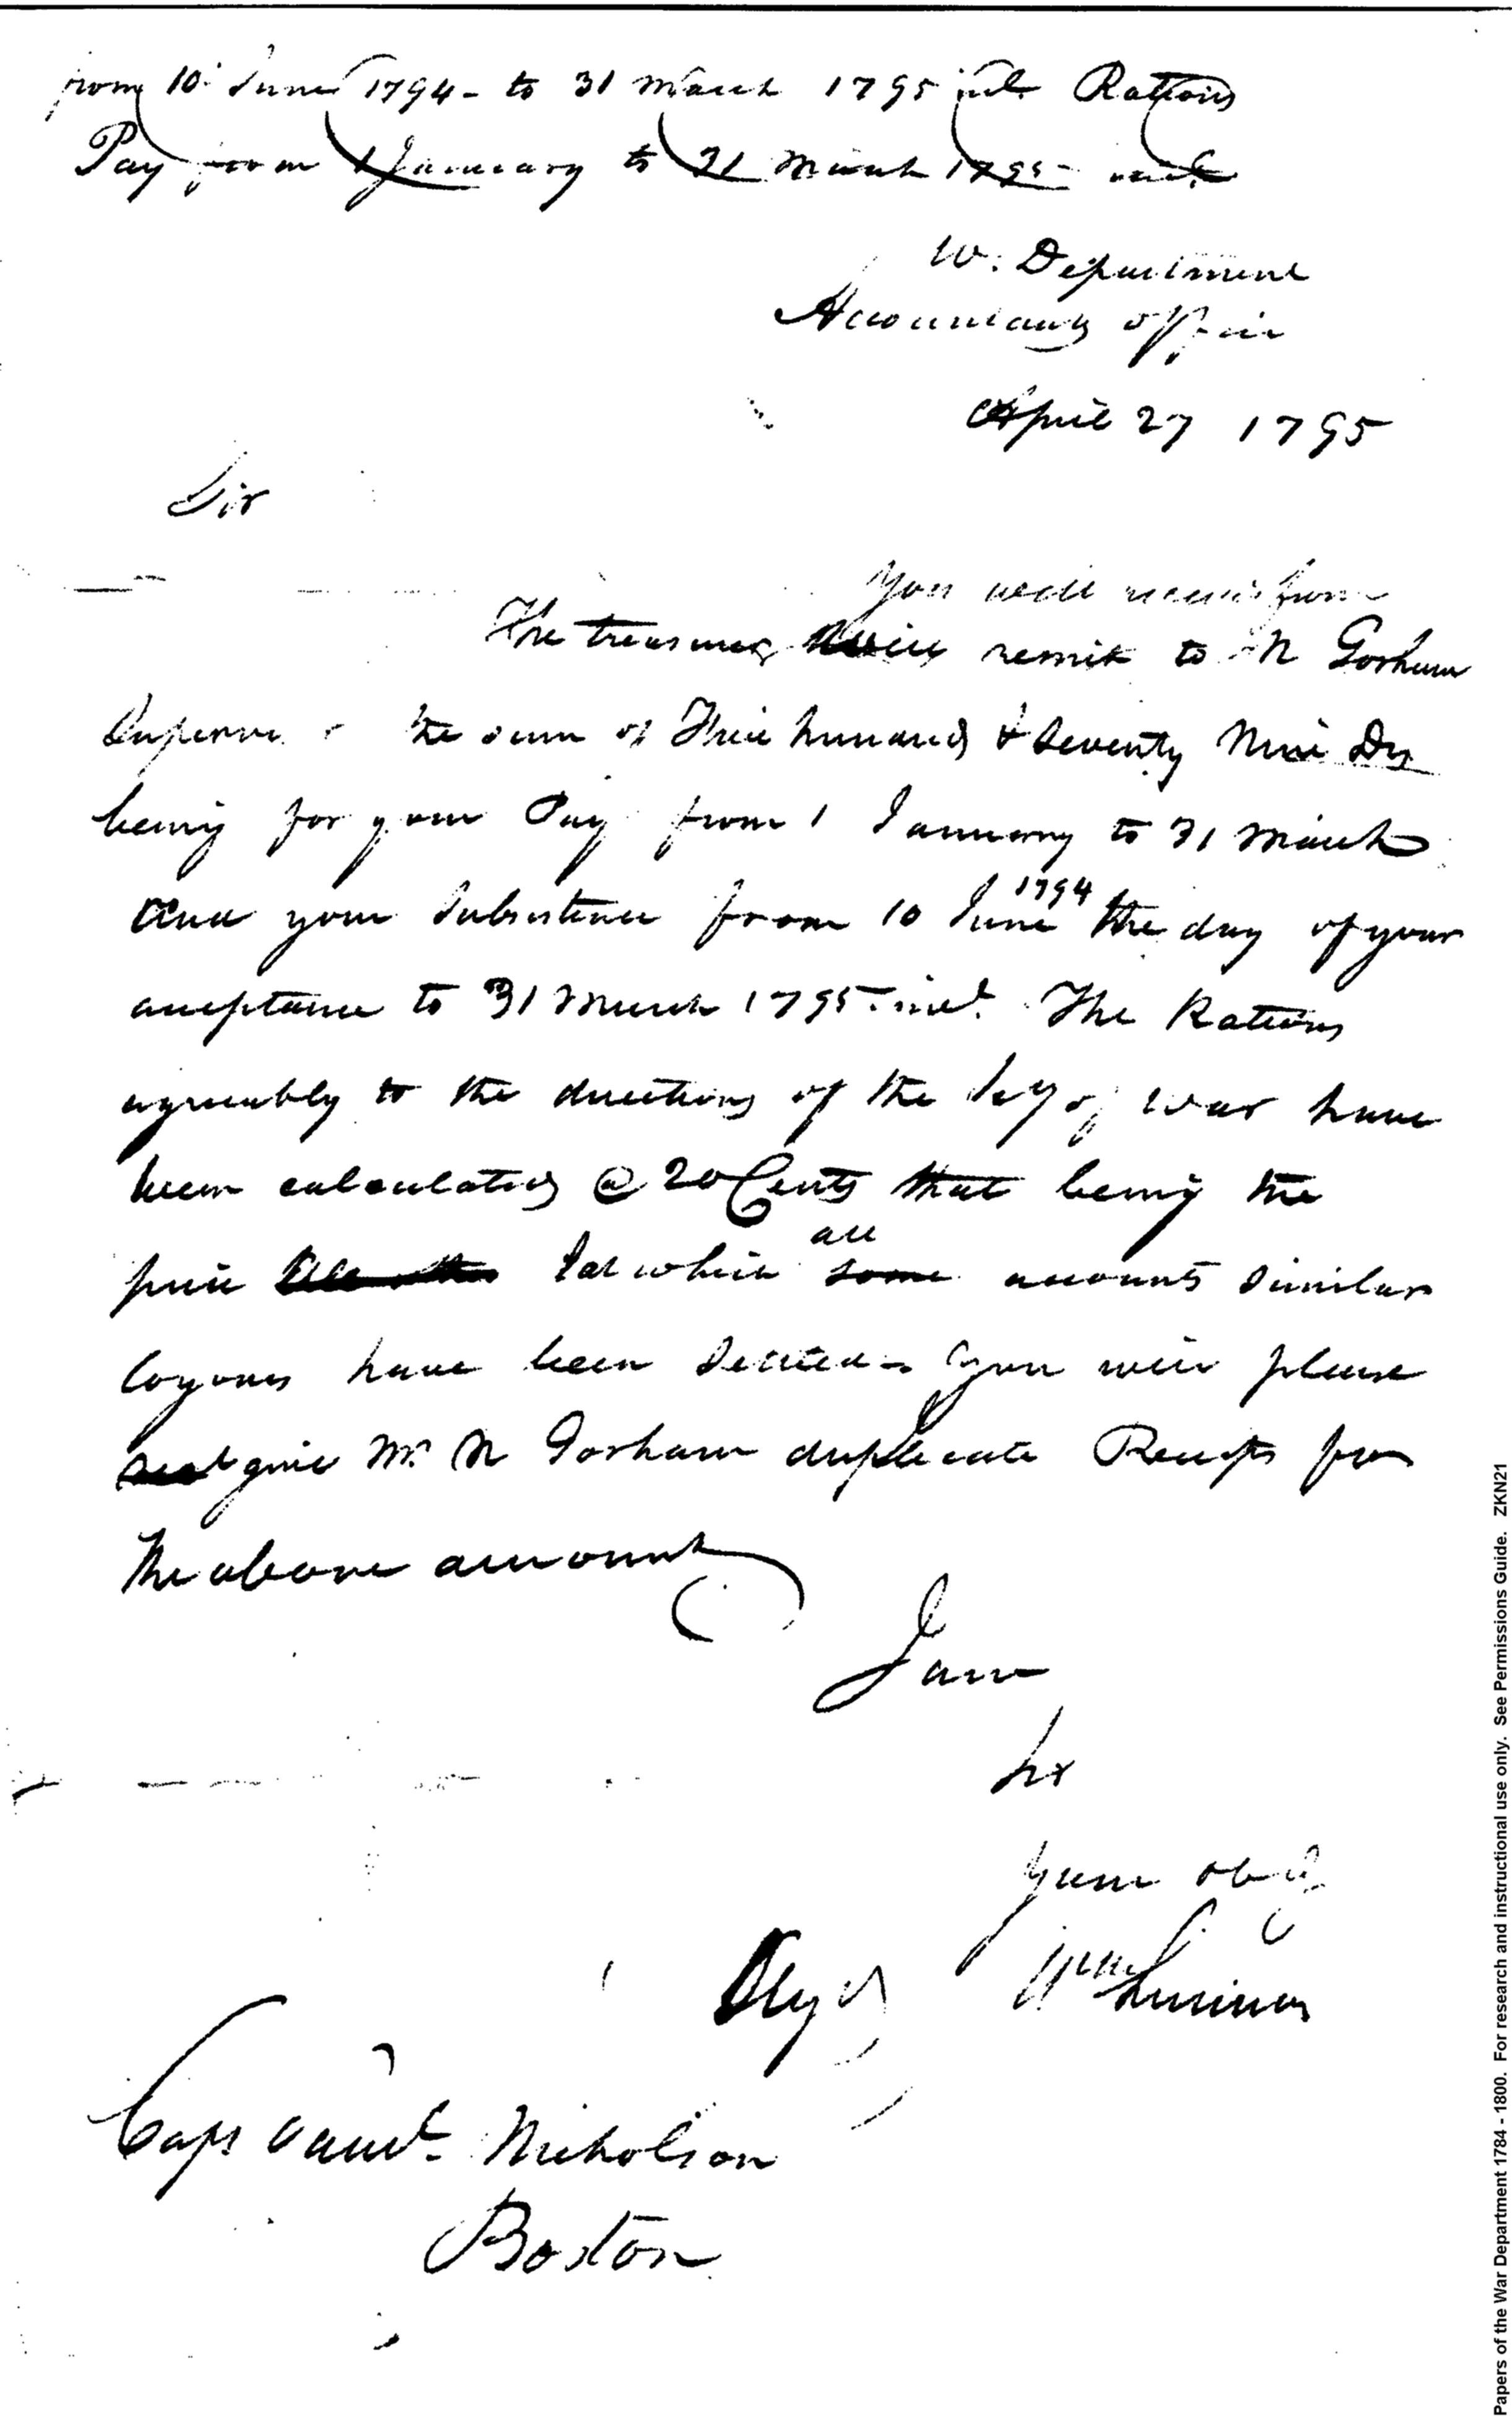 from 10 June 1794 - to 31 March 1795 incl. Rations
Pay from 1 January to 31 March 1795
W. Department
Accountants office
April 27 1795
Sir
You will receive from
The treasurer will remit to N Gorham
Supervisor the sum of Three hundred & Seventy Nine Drs
being for your Pay from 1 January to 31 March
1794
and your Subsistence from 10 June the day of your
acceptance to 31 March 1795 incl. The Rations
agreeably to the directions of the Secy of War have
been calculated @ 20 Cents that being the
all
price at which some accounts similar
to yours have been settled - You will please
give Mr. N Gorham duplicate Receipts for
the above amount
I am
Sir
Your obt
Wm Simmons
Capt Saml. Nicholson
Boston
Papers of the War Department 1784 - 1800. For research and instructional use only. See Permissions Guide. ZKN21